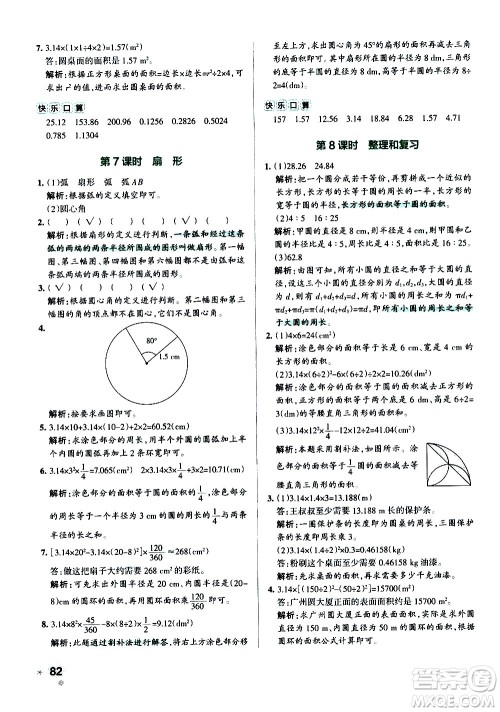 7. 3.14×(1×1÷4×2)=1.57(m²)
答:圆桌面的面积是1.57 m²。
解析:根据正方形桌面的面积=边长×边长=2r×r÷2×2,
可求出r²的值,再根据圆的面积计算公式计算即可。
快乐口算
25.12 153.86 200.96 0.1256 0.5024
0.785 1.1304
第7课时 扇 形
1. (1)弧 扇形 弧 弧AB
解析:根据弧的定义填空即可。
(2)圆心角
2. ( ) ( √ ) ( ) ( √ )
解析:根据扇形的定义进行判断,一条弧和经过这条
弧的两端的两条半径所围成的图形叫做扇形。第一幅
图、第三幅图的两条线段不是圆的半径。
3. ( √ ) ( ) ( ) ( √ )
解析:根据圆心角的定义进行判断。第二幅图和第三
幅图的角的顶点不在圆心,因此不是圆心角。
4.
80°
1.5 cm
解析:按要求画图即可。
5. 3.14×10×2×1/4+(10−2)×2+2×2=60.52(m)
解析:求涂色部分的周长时,外圈的圆弧加上内圈的
圆弧等于半径为10 m的圆的周长的一半。
6. 3.14×3²×1/4=7.065(cm²) 2×3.14×3×1/4+3×2=10.71(cm)
解析:涂色部分的面积等于半径为3 cm的圆的面积
的1/4,周长等于一个半径为3 cm的圆的周长的1/4与两
条半径的长之和。
7. [3.14×20²−3.14×(20−8)²]×120/360≈268(cm²)
答:做这把扇子大约需要268 cm²的彩纸。
解析:求贴纸部分的面积,就是求外圆半径为20 cm、内圆半径为(20−8)cm的圆环的面积,再乘120/360即可。
8. 3.14×8²×45/360−8×(8÷2)÷2=9.12(cm²)
解析:可通过割补法进行解答,将右上方涂色部分移
82
至左上方,求出圆心角为45°的扇形的面积再减去三角
形的面积即可。其中扇形所在圆的半径为8 cm,三角
形的底等于半圆的直径为8 cm,高等于半圆的半径为8÷
2=4(cm)。
快乐口算
157 1.57 31.4 18.84 6.28 4.71
第8课时 整理和复习
1. (1)28.26 24.84
解析:把一个圆分成若干等份,再拼成一个近似的长
方形,长方形的面积等于圆的面积,长方形的长等于圆
周长的一半,宽等于圆的半径,长方形的周长等于长与
宽的和的2倍。
(2)4:5 16:25
解析:甲圆和乙圆的直径比为4:5,则甲圆和乙
圆的半径比为4:5,周长比为4:5,面积比为16:25。
(3)62.8
解析:由图可知,所有小圆的直径之和等于大圆的直
径,再由d₁+d₂+d₃+d₄+d₅=d大可推出πd₁+πd₂+
πd₃+πd₄+πd₅=πd大,所以所有小圆的周长之和等
于大圆的周长。
2. (1)4×6=24(cm²)
解析:涂色部分的面积等于长方形的面积。
(2)3.14×(6÷2)²−3.14×(6÷2÷2)²×2=14.13(cm²)
解析:涂色部分的面积等于大圆的面积减去两个小圆的面积。
(3)3.14×12²×1/4−12×12÷2=41.04(cm²)
解析:本题采用割补法,涂色部分
的面积等于半径为12 cm的圆面积
的1/4减去直角边为12 cm的等腰
直角三角形的面积。
3. (1)3.14×20×3=188.4(cm)
答:王叔叔至少需要188.4 cm长的铁条。
解析:铁条的长度相当于3个圆的周长,求出圆的周
长再乘3即可。
(2)3.14×(1.4÷2)²×0.3=0.46158(kg)
答:粉刷这个桌面至少需要0.46158 kg油漆。
解析:求出桌面面积再乘0.3即可。
3. 3.14×[(150÷2)²−(50÷2)²]=15700(m²)
答:广州圆大厦正面的表面面积约是15700 m²。
解析:求广州圆大厦正面的面积就是求圆环的面积,
根据圆环面积公式计算即可。